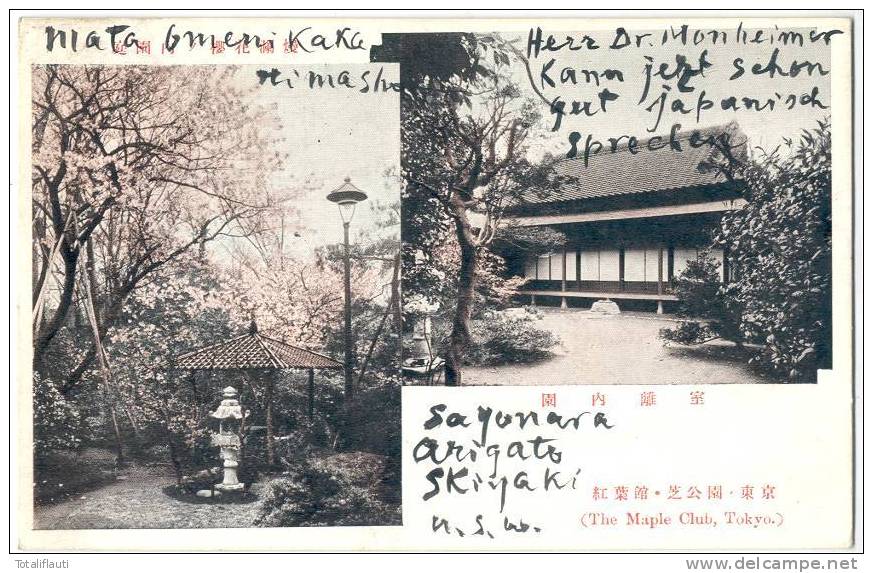 mata omeni Kaka
Himashu
Herr Dr. Monheimer
Kann jetzt schon
gut japanisch
sprechen
園 內 離 室
Sayonara
Arigato
Skiyaki
u. s. w.
紅葉館・芝公園・東京
(The Maple Club, Tokyo.)
Totaliflauti
www.delcampe.net